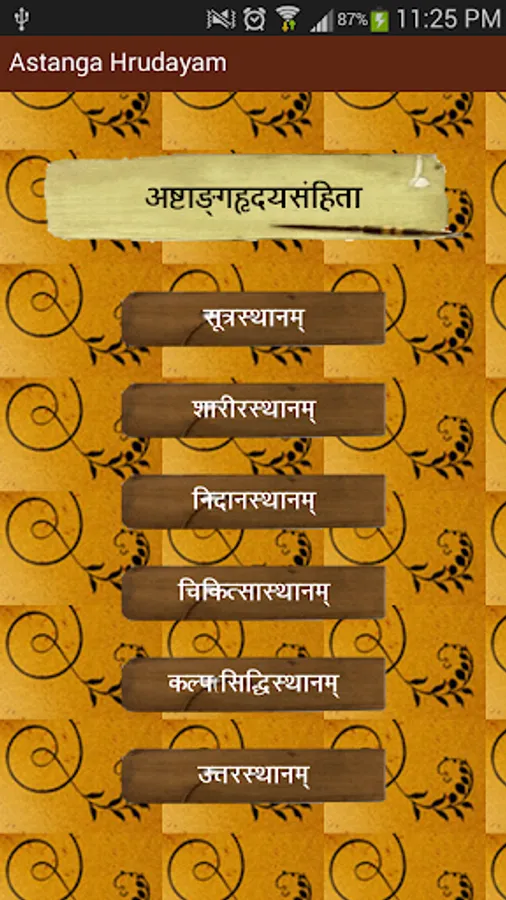 87% 11:25 PM
Astanga Hrudayam
अष्टाङ्गहृदयसंहिता
सूत्रस्थानम्
शारीरस्थानम्
निदानस्थानम्
चिकित्सास्थानम्
कल्प सिद्धिस्थानम्
उत्तरस्थानम्